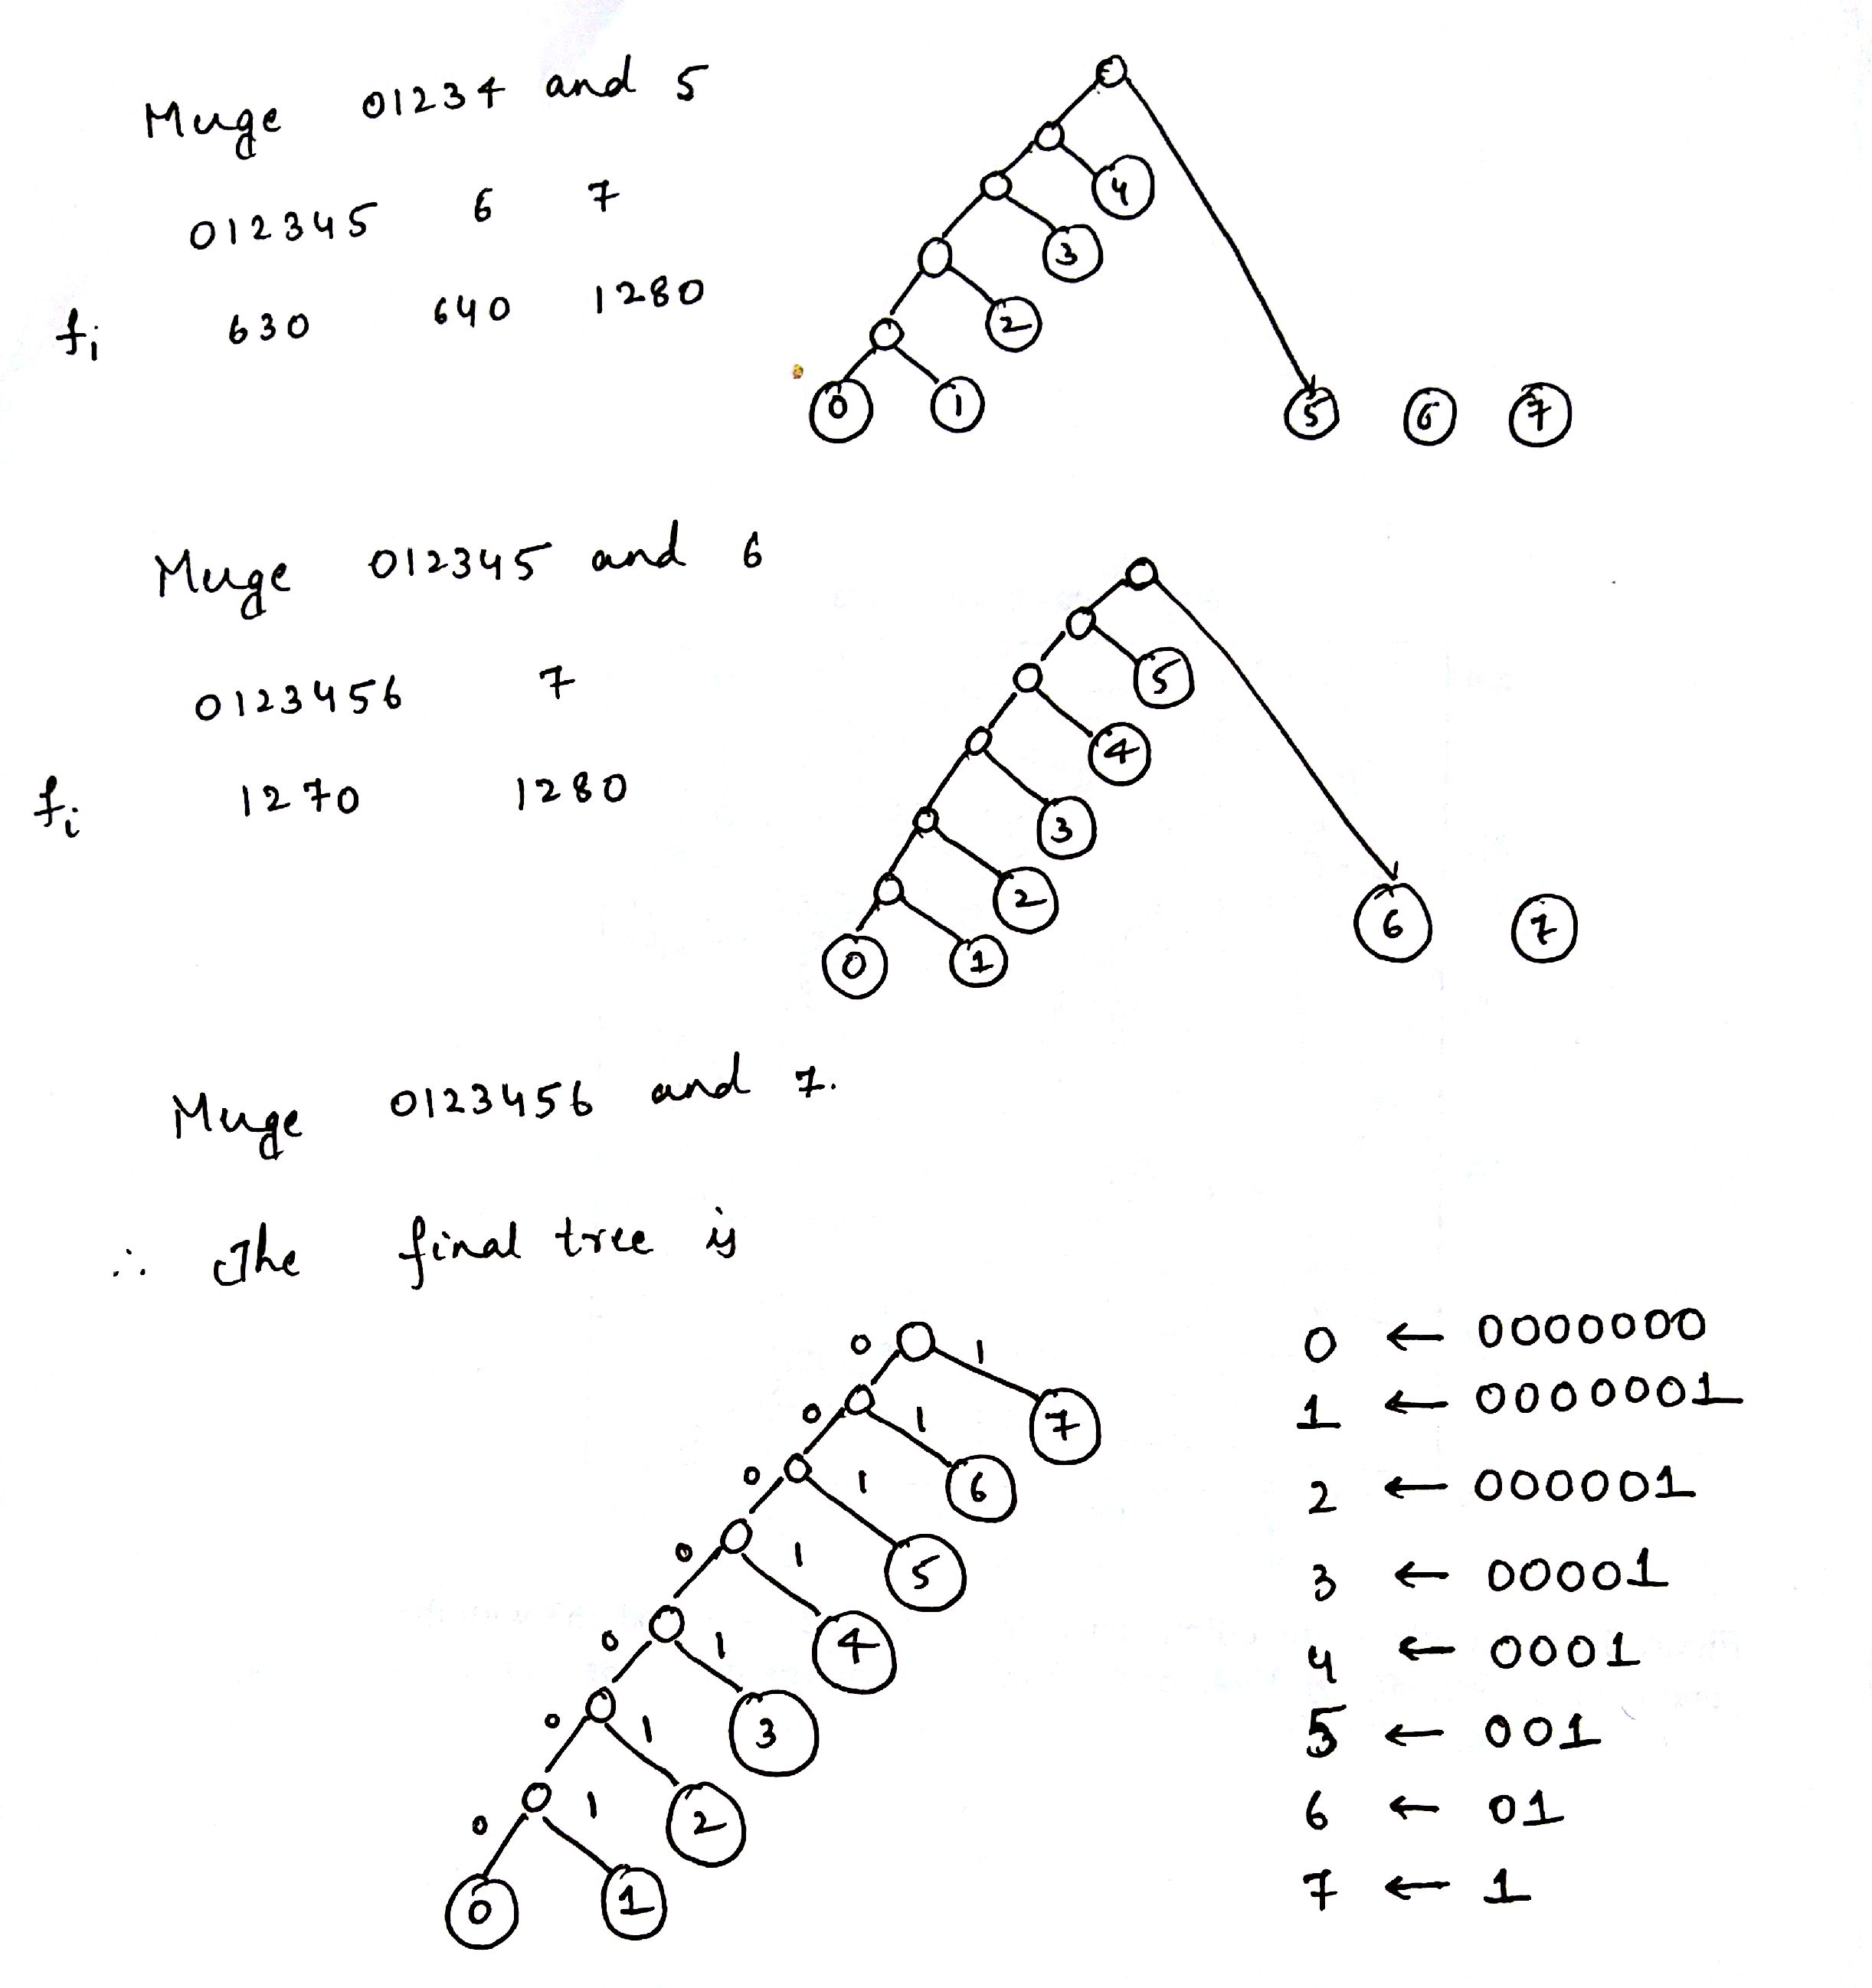 Merge 01234 and 5
012345 6 7
fi 630 640 1280
4
3
2
0 1 5 6 7
Merge 012345 and 6
0123456 7
fi 1270 1280
5
4
3
2
0 1 6 7
Merge 0123456 and 7.
∴ The final tree is
0 1
7
0 1
6
0 1
5
0 1
4
0 1
3
0 1
2
0 1
0 1
0 ← 0000000
1 ← 0000001
2 ← 000001
3 ← 00001
4 ← 0001
5 ← 001
6 ← 01
7 ← 1